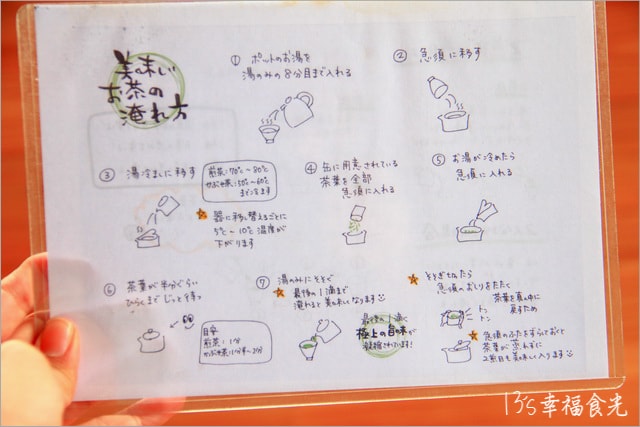 美味い
お茶の
淹れ方
① ポットのお湯を
湯のみの8分目まで入れる
② 急須に移す
③ 湯冷ましに移す
煎茶:70℃~80℃
かぶせ茶:50℃~60℃
まで冷ます
器に移し替えるごとに
5℃~10℃温度が
下がります
④ 缶に用意されている
茶葉を全部
急須に入れる
⑤ お湯が冷めたら
急須に入れる
⑥ 茶葉が半分ぐらい
ひらくまでじっと待つ
目安
煎茶:1分
かぶせ茶:1分半~2分
⑦ 湯のみにそそぐ
最後の1滴まで
淹れると美味しくなります
最後の1滴に
極上の旨味が
凝縮されています!
そそぎ切ったら
急須のおしりをたたく
茶葉を真中に
戻すため
トントン
急須のふたをずらしておくと
茶葉が蒸れずに
2煎目も美味しく入ります
13's幸福食光